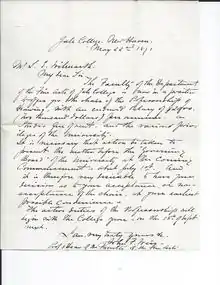 Yale College, New Haven.
May 22nd 1871.
Mr.
My dear Sir
The Faculty of the Department
of the Fine Arts of Yale College is now in a position
to offer you the chair of the Professorship of
Drawing, with an annual salary of
thousand dollars per annum
and the various privi-
leges of the University.
It is necessary that action be taken to
present the matter before the Governing
Board of the University at the coming
Commencement in July 1st. And
it is therefore very desirable to have your
decision as to your acceptance, or non-
acceptance of the chair, at your earliest
possible convenience.
The active duties of the Professorship will
begin with the College year, on the 15th of Sept
next.
I am, very truly yours &c.
John F. Weir